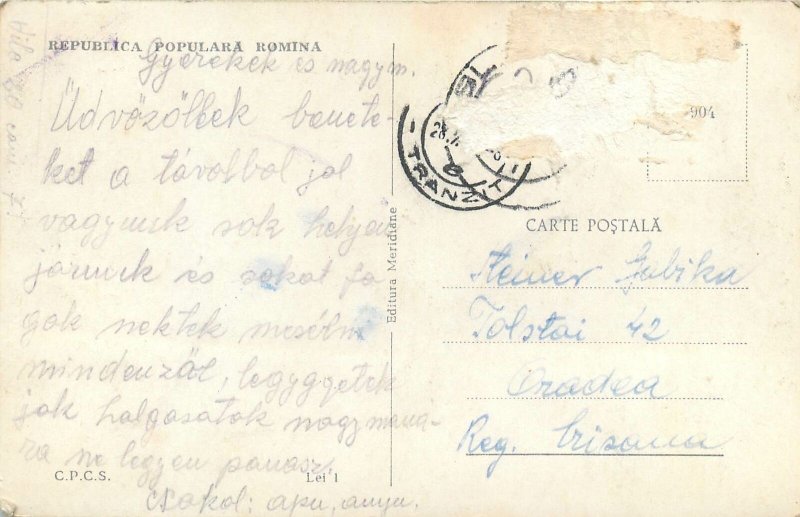 REPUBLICA POPULARA ROMINA
Gyerekek és nagym.
Üdvözöllek bennete-
ket a távolbol jol
vagyunk sok helyen
járunk és sokat fo
gok nektek mesélni
mindenzöl, legyggetek
jok halgasatok nagymamá-
ra ne legyen panasz.
csokol: apu, anyu.
C.P.C.S.
Lei 1
Editura Meridiane
TRANZIT
904
CARTE POȘTALĂ
Steiner Gabika
Tolstoi 42
Oradea
Reg. Crisana